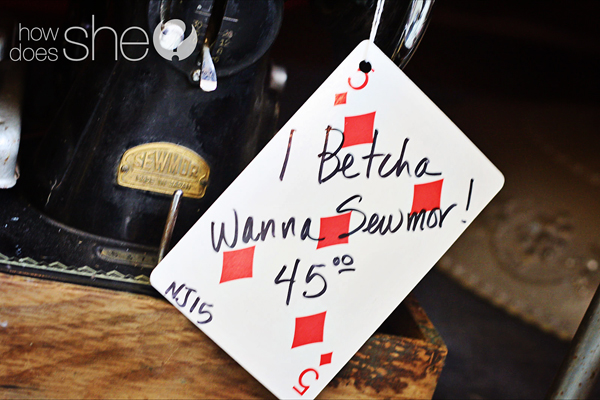 how
does she?
SEWMOR
5
I Betcha
Wanna Sewmor!
45.00
NJ15
5